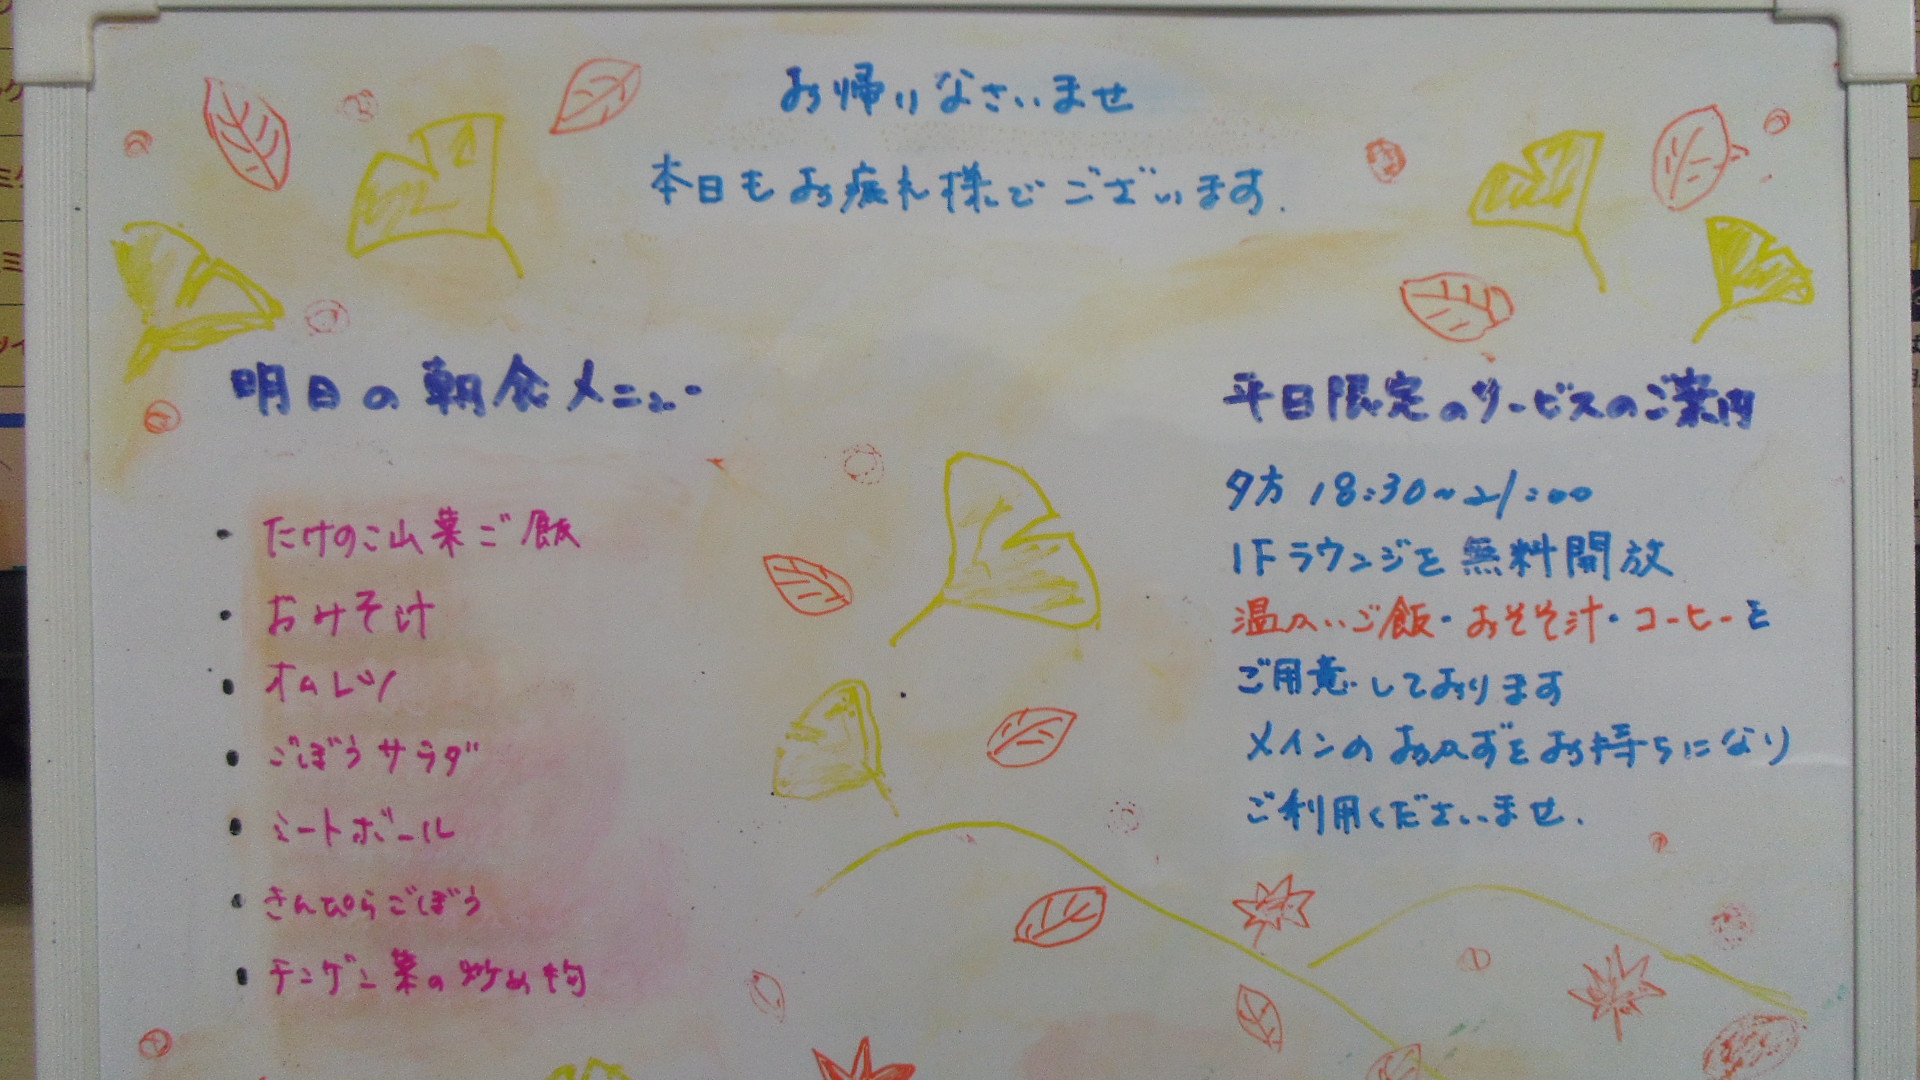 お帰りなさいませ
本日もお疲れ様でございます.
明日の朝食メニュー
・たけのこ山菜ご飯
・おみそ汁
・オムレツ
・ごぼうサラダ
・ミートボール
・きんぴらごぼう
・チンゲン菜の炒め物
平日限定のサービスのご案内
夕方 18:30~21:00
1Fラウンジを無料開放
温かいご飯・おそそ汁・コーヒーを
ご用意しております
メインのおかずをお持ちになり
ご利用くださいませ.